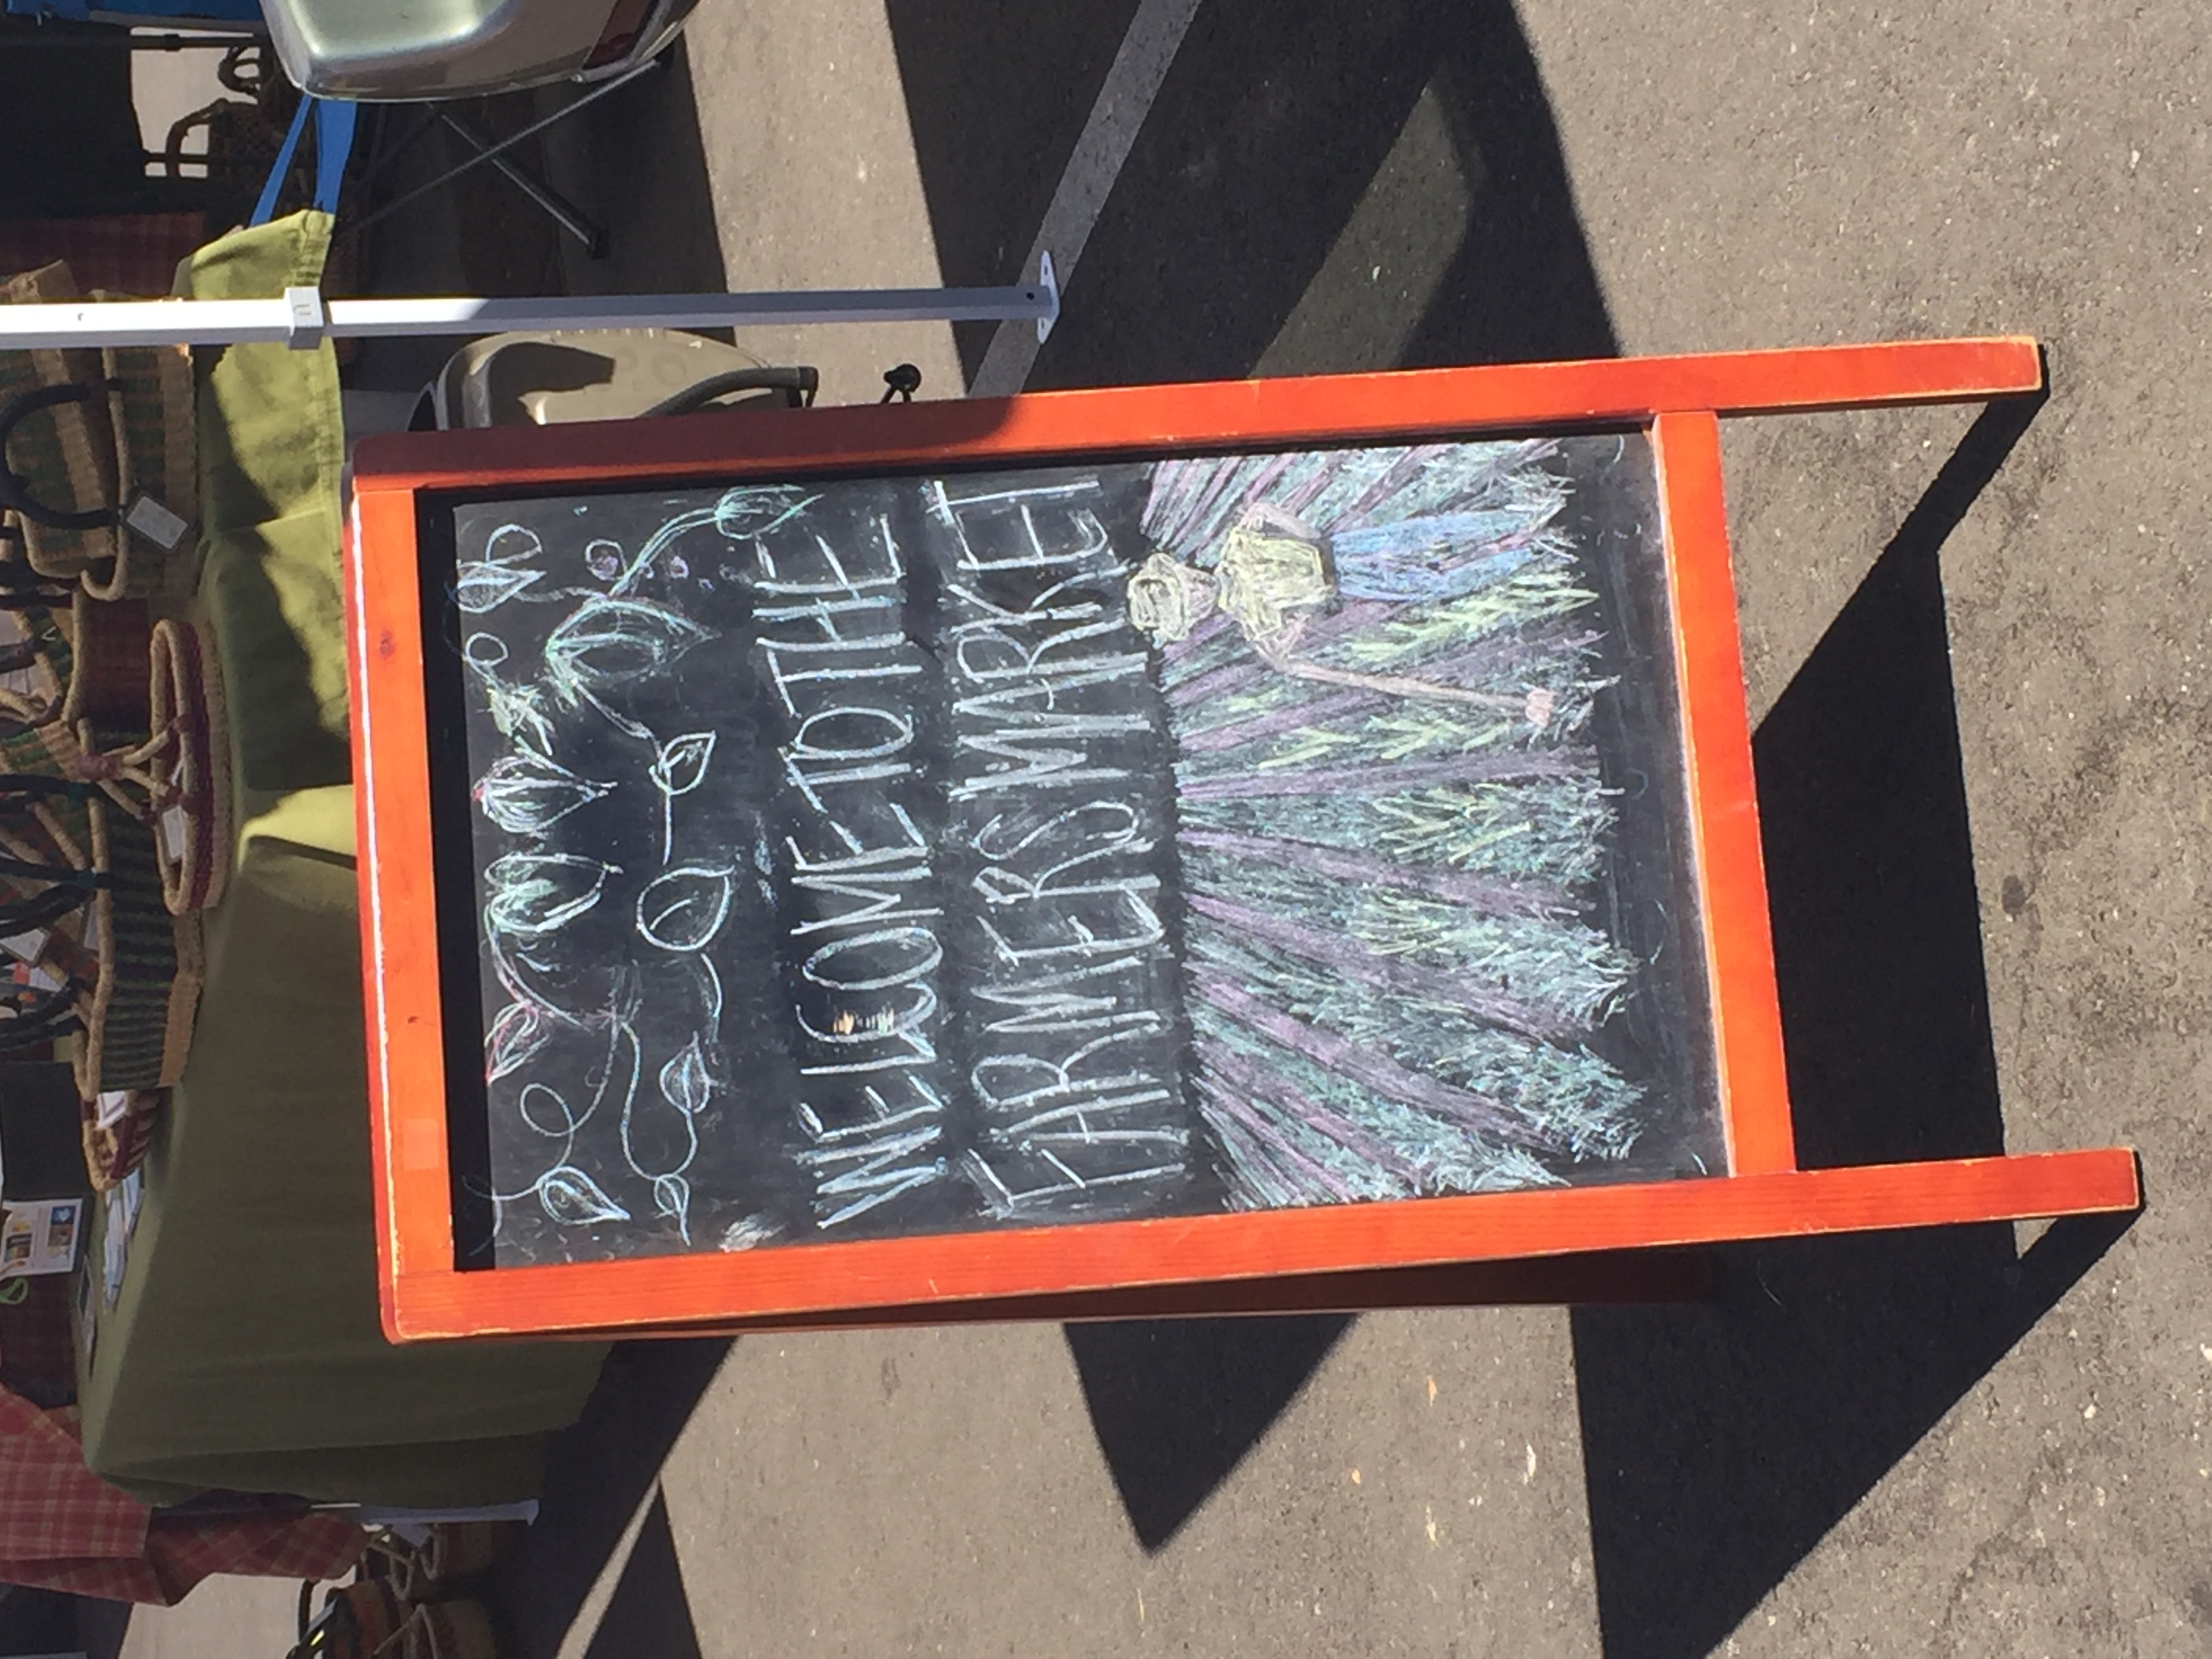 WELCOME TO THE
FARMERS MARKET